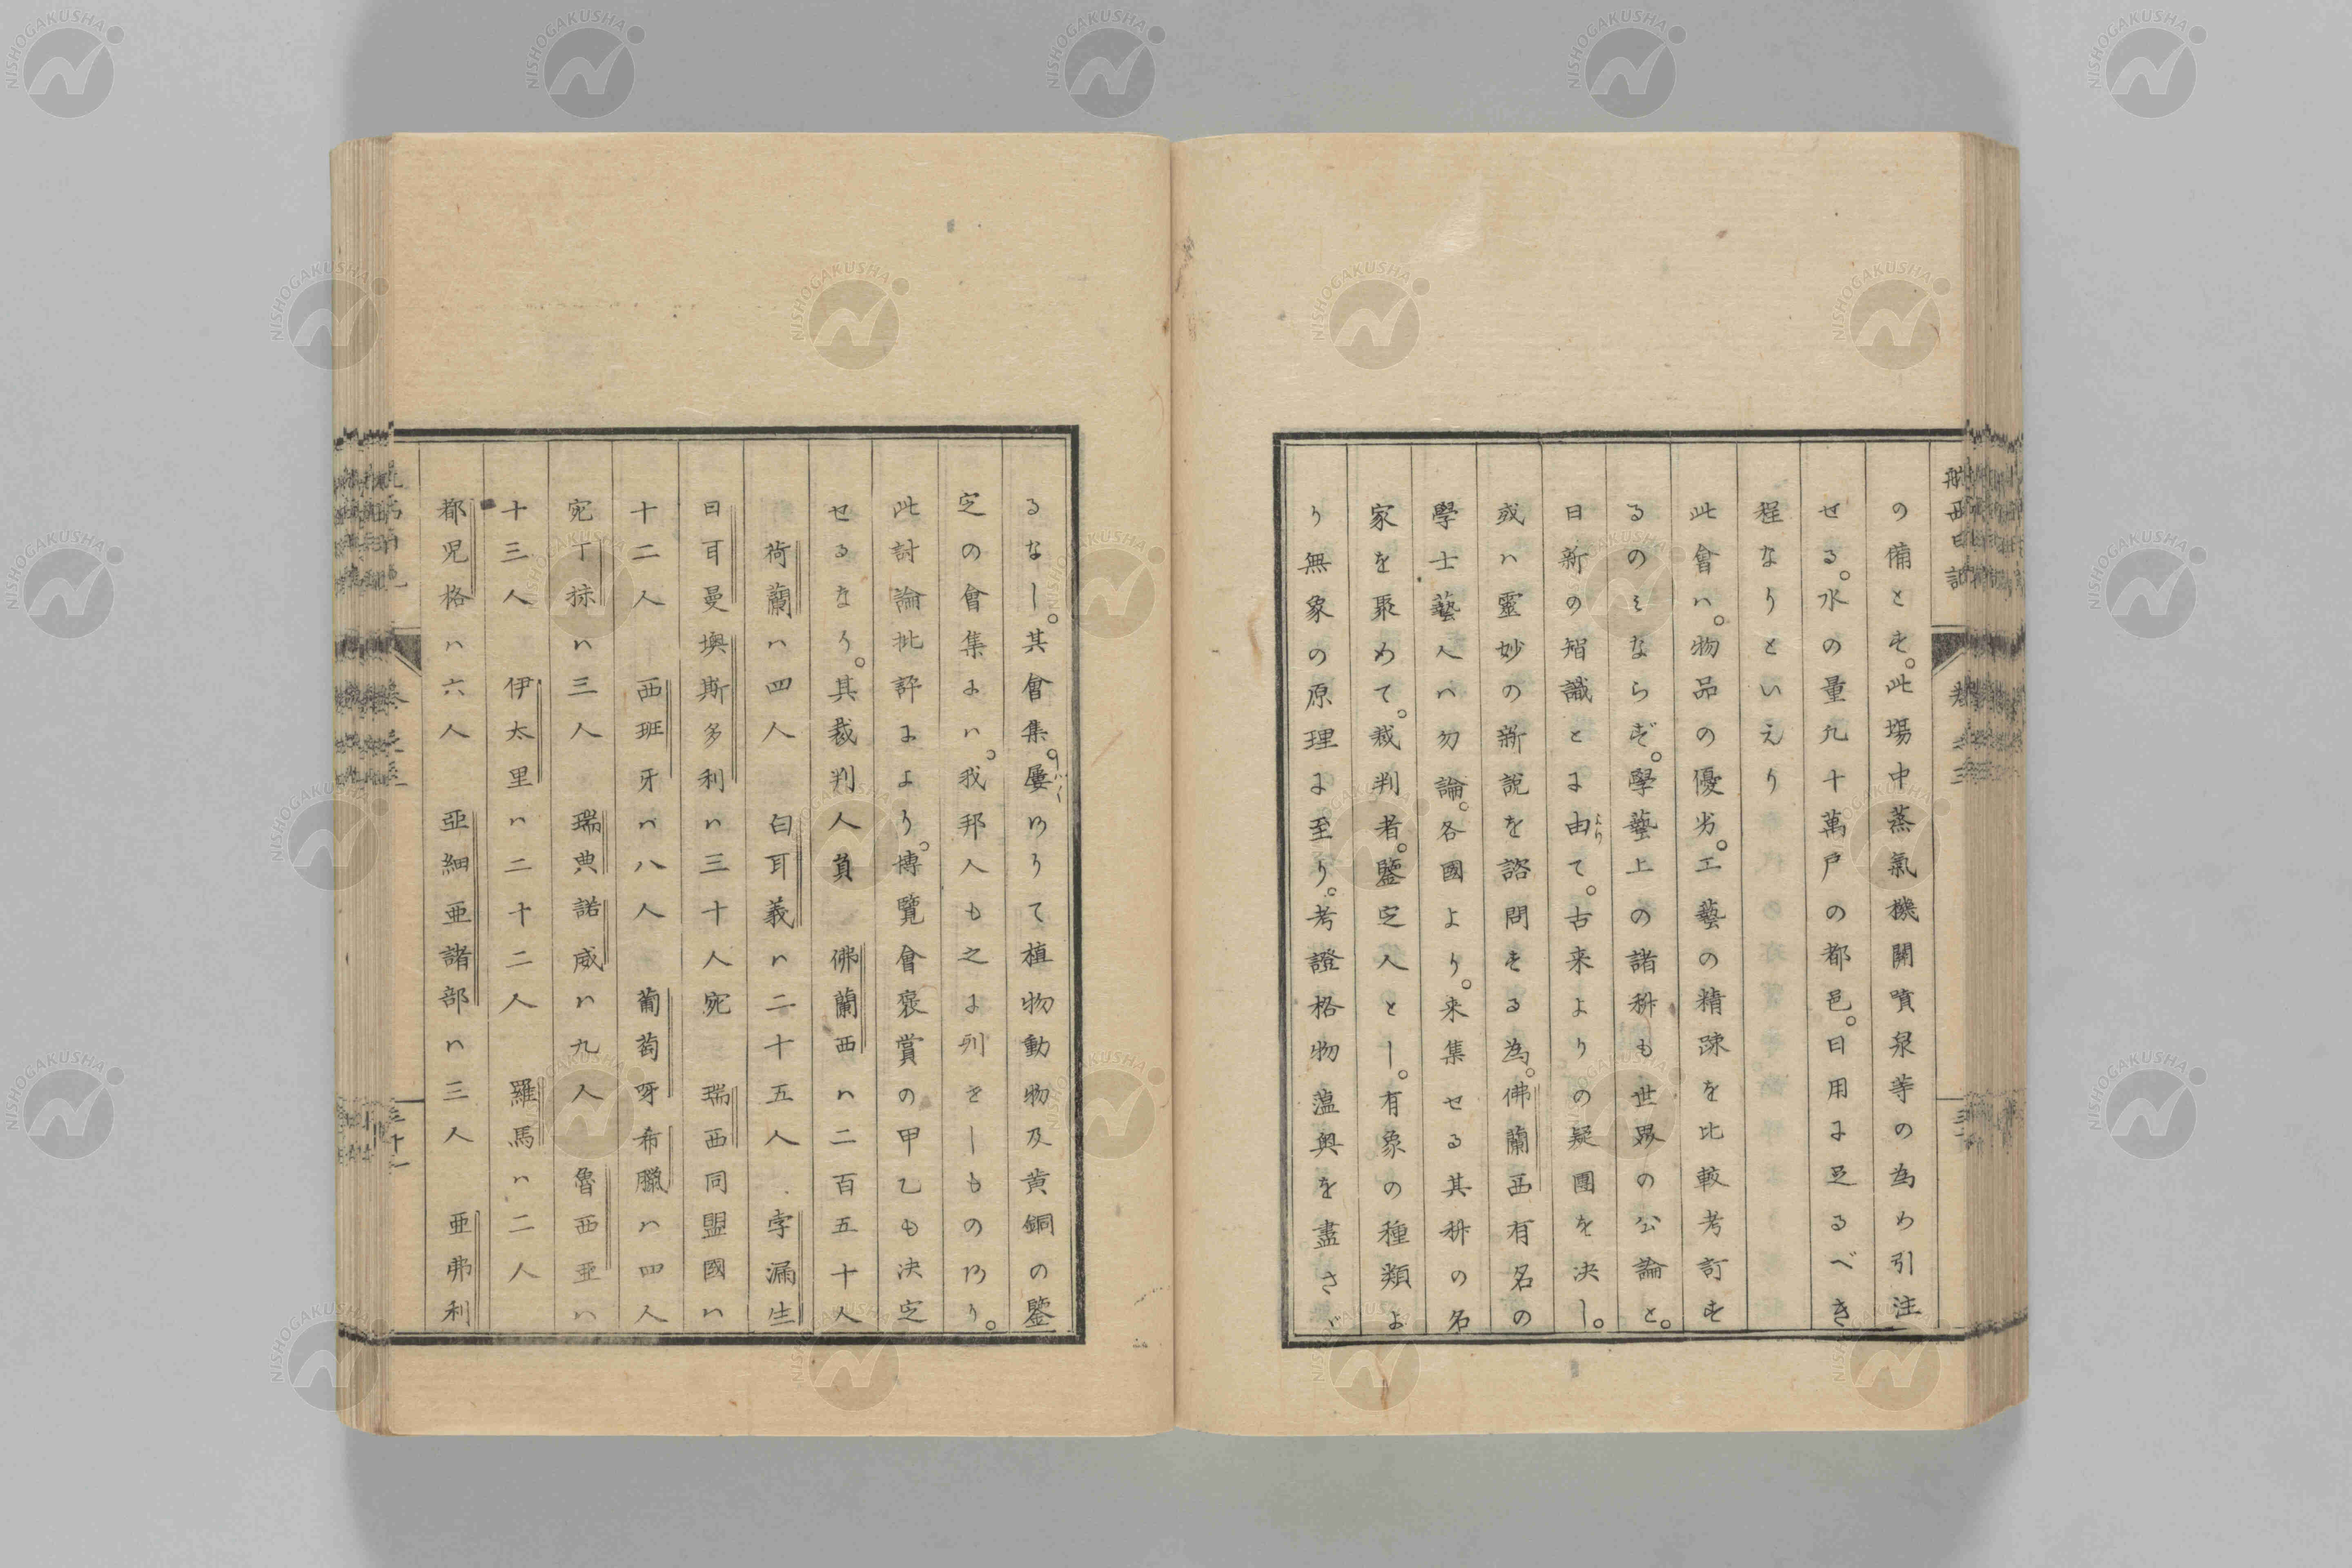 の備とせ。此場中蒸氣機關噴泉等の為め引注
せる。水の量九十萬戸の都邑。日用に足るべき
程なりといえり
此會ハ。物品の優劣。工藝の精疎を比較考訂せ
るのミならず。學藝上の諸科も世界の公論と。
日新の智識とに由て。古来よりの疑團を决し。
或ハ靈妙の新説を諮問せる為。佛蘭西有名の
學士藝人ハ勿論。各國より。来集せる其科の名
家を聚めて。裁判者。鑒定人とし。有象の種類よ
り無象の原理に至り。考證格物薀奥を盡さゞ
るなし。其會集。屡ありて植物動物及黄銅の鑒
定の會集にハ。我邦人も之に列せしものあり。
此討論批評により。博覽會褒賞の甲乙も决定
せるなり。其裁判人員 佛蘭西ハ二百五十人
荷蘭ハ四人 白耳義ハ二十五人 孛漏生
日耳曼墺斯多利ハ三十人宛 瑞西同盟國ハ
十二人 西班牙ハ八人 葡萄呀希臘ハ四人
宛丁抹ハ三人 瑞典諾威ハ九人 魯西亜ハ
十三人 伊太里ハ二十二人 羅馬ハ二人
都児格ハ六人 亞細亜諸部ハ三人 亜弗利
航西日記
巻之三
三十一
NISHOGAKUSHA